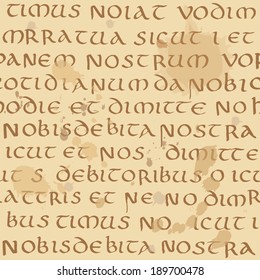 TIMUS NOIAT VODIM
MRRATUA SICUT I ET
PANEM NOSTRUM VOR
OTIDIANUM DANOBIS
HODIE ET DIMITTE NO
NOBISDEBITA NOSTRA
ICUT ET NOS DIMITTE
UT S DEBITORIBUS O IC
ATTRIS ET NE NO DIMI
BUS TIMUS NO ICUT I
NOBISDEBITA NOSTRA
shutterstock.com · 189700478